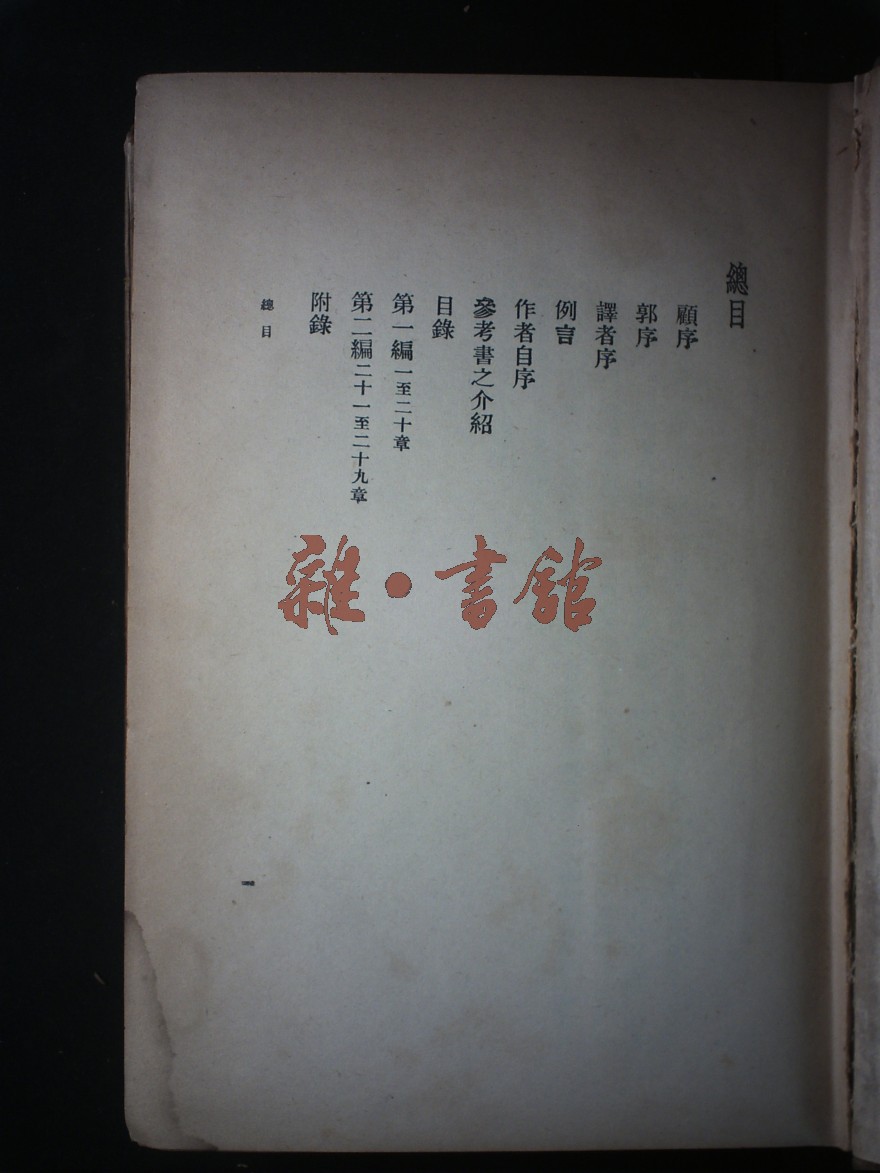 總目
顧序
郭序
譯者序
例言
作者自序
參考書之介紹
目錄
第一編一至二十章
第二編二十一至二十九章
附錄
總目
一
雜·書館